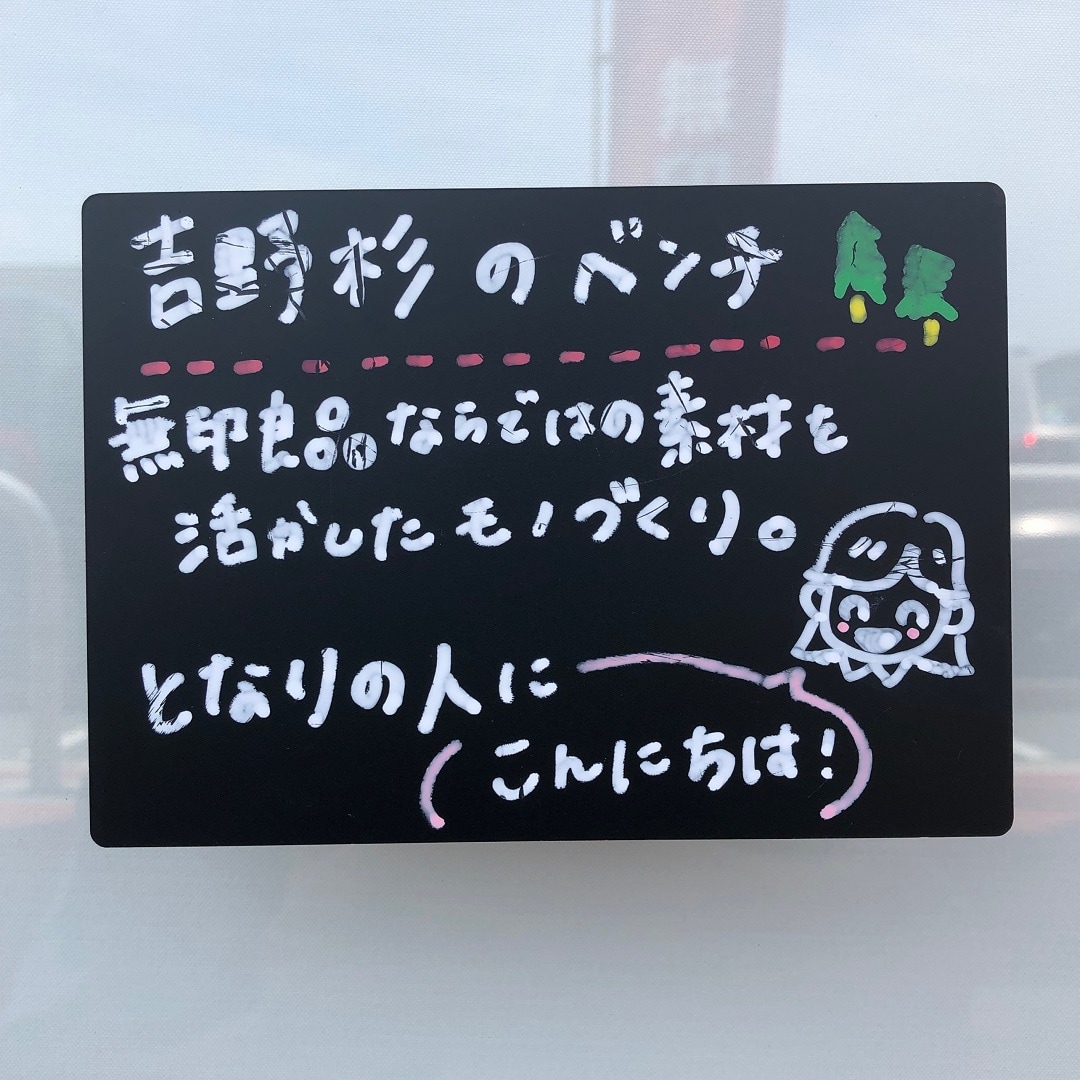 吉野杉のベンチ
無印良品®ならではの素材を
活かしたモノづくり。
となりの人に
こんにちは!